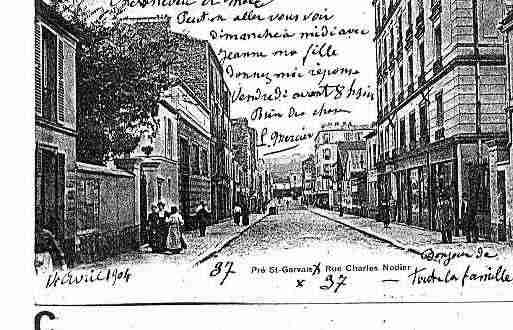 et moi
Peut on aller vous voir
dimanche à midi avec
Jeanne ma fille
donnez moi réponse
Vendredi avant 8h
Bien des choses
E. Mercier
Bonjour de
toute la famille
14 Avril 1904
37
Pré St-Gervais Rue Charles Nodier
x 37 —